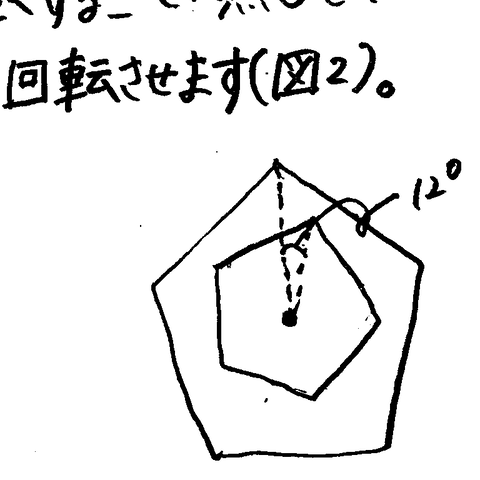 回転させます(図2)。
12°